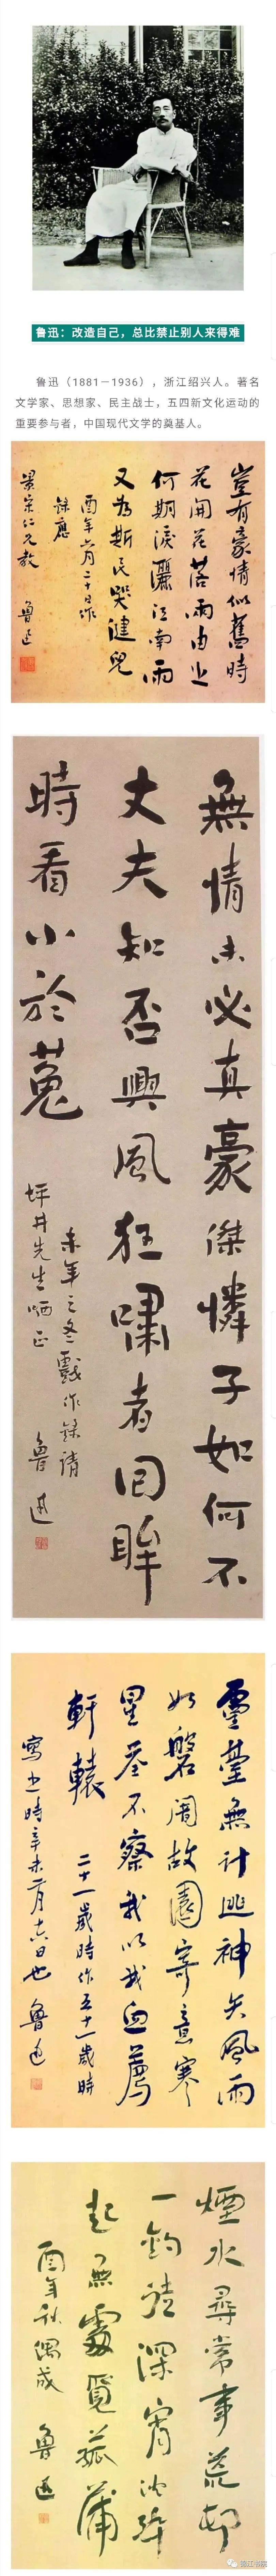 鲁迅：改造自己，总比禁止别人来得难
鲁迅（1881－1936），浙江绍兴人。著名
文学家、思想家、民主战士，五四新文化运动的
重要参与者，中国现代文学的奠基人。
豈有豪情似舊時
花開花落兩由之
何期淚灑江南雨
又為斯民哭健兒
酉年六月二十日作
錄應
景宋仁兄教
魯迅
無情未必真豪傑憐子如何不
丈夫知否興風狂嘯者回眸
時看小於菟
未年之冬戲作錄請
坪井先生哂正
魯迅
靈臺無計逃神矢風雨
如磐闇故園寄意寒
星荃不察我以我血薦
軒轅
二十一歲時作五十一歲時
寫之時辛未二月十六日也 魯迅
煙水尋常事荒邨
一釣徒深宵沈醉
起無處覓菰蒲
酉年秋偶成
魯迅
锦江书院